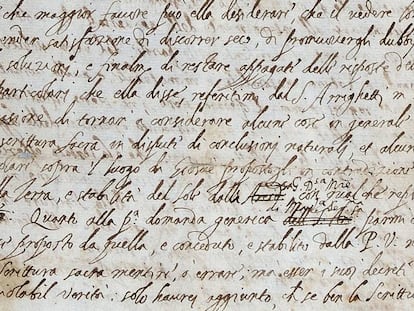 che maggior favore ella desiderare, che il vedere
render satisfazione di discorrer seco, di promuovergli dubbi
soluzioni, e finalm. di restare appagati dell risposte d
particolari che ella disse referitimi dal S. Arrighetti
ssione di tornar a considerare alcune cose in general
scrittura sacra in dispute di conclusioni naturali et alcun
sopra l luogo di Giosue propostogli, in contradizione
la Terra, e stabilità del Sole dalla con che rep
Quanto alla p.ª domanda generica parmi
proposto da quella, e conceduto, e stabilito dalla P. V.
scrittura sacra mentire o errare, ma esser i suoi decreti
iolabil verità. solo haurei aggiunto, ch se ben la Scrittu